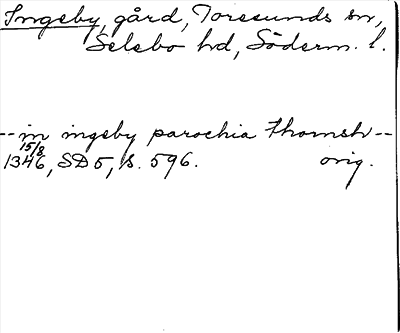 Ingeby, gård, Toresunds sn,
Selebo hd, Söderm. l.
-- in ingeby parochia thomsh --
15/8
1346, SD 5, s. 596. orig.